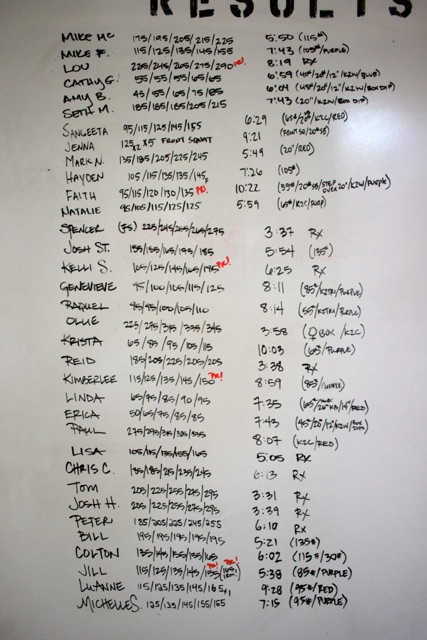 RESULTS
MIKE MC 175/195/205/215/225 5:50 (115#)
MIKE F. 115/125/135/145/155 7:43 (105#/PURPLE)
LOU 225/245/265/275/290 PR! 8:19 RX
CATHY G. 55/55/55/65/65 6:59
AMY B. 45/55/65/75/85 6:04
SETH M. 185/185/185/205/215 7:43 (20"/K2N/BOX DIP)
SANGEETA 95/115/125/145/155 6:29
JENNA X5 FRONT SQUAT 9:21
MARK N. 135/185/205/225/245 5:49 (20"/RED)
HAYDEN 105/115/135/135/145 7:26 (105#)
FAITH 95/115/120/130/135 PR. 10:22
NATALIE 95/105/115/125/125 5:59
SPENCER (FS) 225/245/255/265/295 3:37 RX
JOSH ST. 155/155/165/175/185 5:54 (135#)
KELLI S. 105/125/145/165/175 PR! 6:25 RX
GENEVIEVE 95/100/105/115/125 8:11
RAQUEL 85/95/100/105/110 8:14
OLLIE 225/275/315/335/345 3:58 (♀ BOX/K2C)
KRISTA 65/85/95/105/115 10:03 (65#/PURPLE)
REID 185/205/225/205/205 3:38 RX
KIMBERLEE 115/125/135/145/150 PR! 8:59 (85#/PURPLE)
LINDA 65/75/85/90/95 7:35
ERICA 50/65/75/85/85 7:43
PAUL 275/295/315/335/355 8:07 (K2C/RED)
LISA 105/115/135/155/165 5:05 RX
CHRIS C. 135/185/215/235/245 6:13 RX
TOM 205/225/255/275/295 3:31 RX
JOSH H. 205/225/255/275/295 3:39 RX
PETER 135/205/225/245/255 6:10 RX
BILL 195/195/195/195/195 5:21 (135#)
COLTON 135/145/155/155/165 6:02 (115#/30#)
JILL 115/125/135/145/155 PR! PR! 5:38 (85#/PURPLE)
LUANNE 115/125/135/145/165 9:28 (95#/RED)
MICHELLE S. 125/135/145/155/165 7:15 (95#/PURPLE)